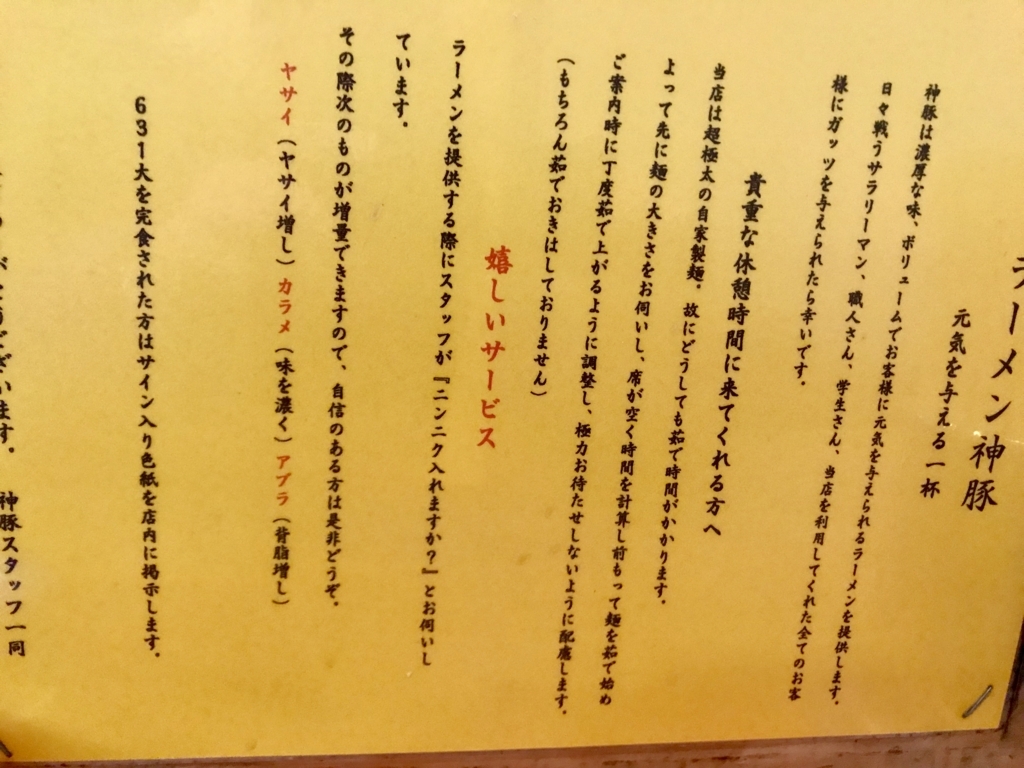 ラーメン神豚
元気を与える一杯
神豚は濃厚な味、ボリュームでお客様に元気を与えられるラーメンを提供します。
日々戦うサラリーマン、職人さん、学生さん、当店を利用してくれた全てのお客
様にガッツを与えられたら幸いです。
貴重な休憩時間に来てくれる方へ
当店は超極太の自家製麺。故にどうしても茹で時間がかかります。
よって先に麺の大きさをお伺いし、席が空く時間を計算し前もって麺を茹で始め
ご案内時に丁度茹で上がるように調整し、極力お待たせしないように配慮します。
(もちろん茹でおきはしておりません)
嬉しいサービス
ラーメンを提供する際にスタッフが『ニンニク入れますか?』とお伺いし
ています。
その際次のものが増量できますので、自信のある方は是非どうぞ。
ヤサイ(ヤサイ増し)カラメ(味を濃く)アブラ(背脂増し)
631大を完食された方はサイン入り色紙を店内に掲示します。
うございます。 神豚スタッフ一同